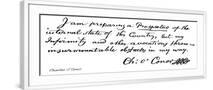 I am preparing a Prospectus of the
internal state of the Country, but my
Infirmity and other occasions throw in
insurmountable obstacles in my way.
Ch: O'Conor
Charles O'Conor